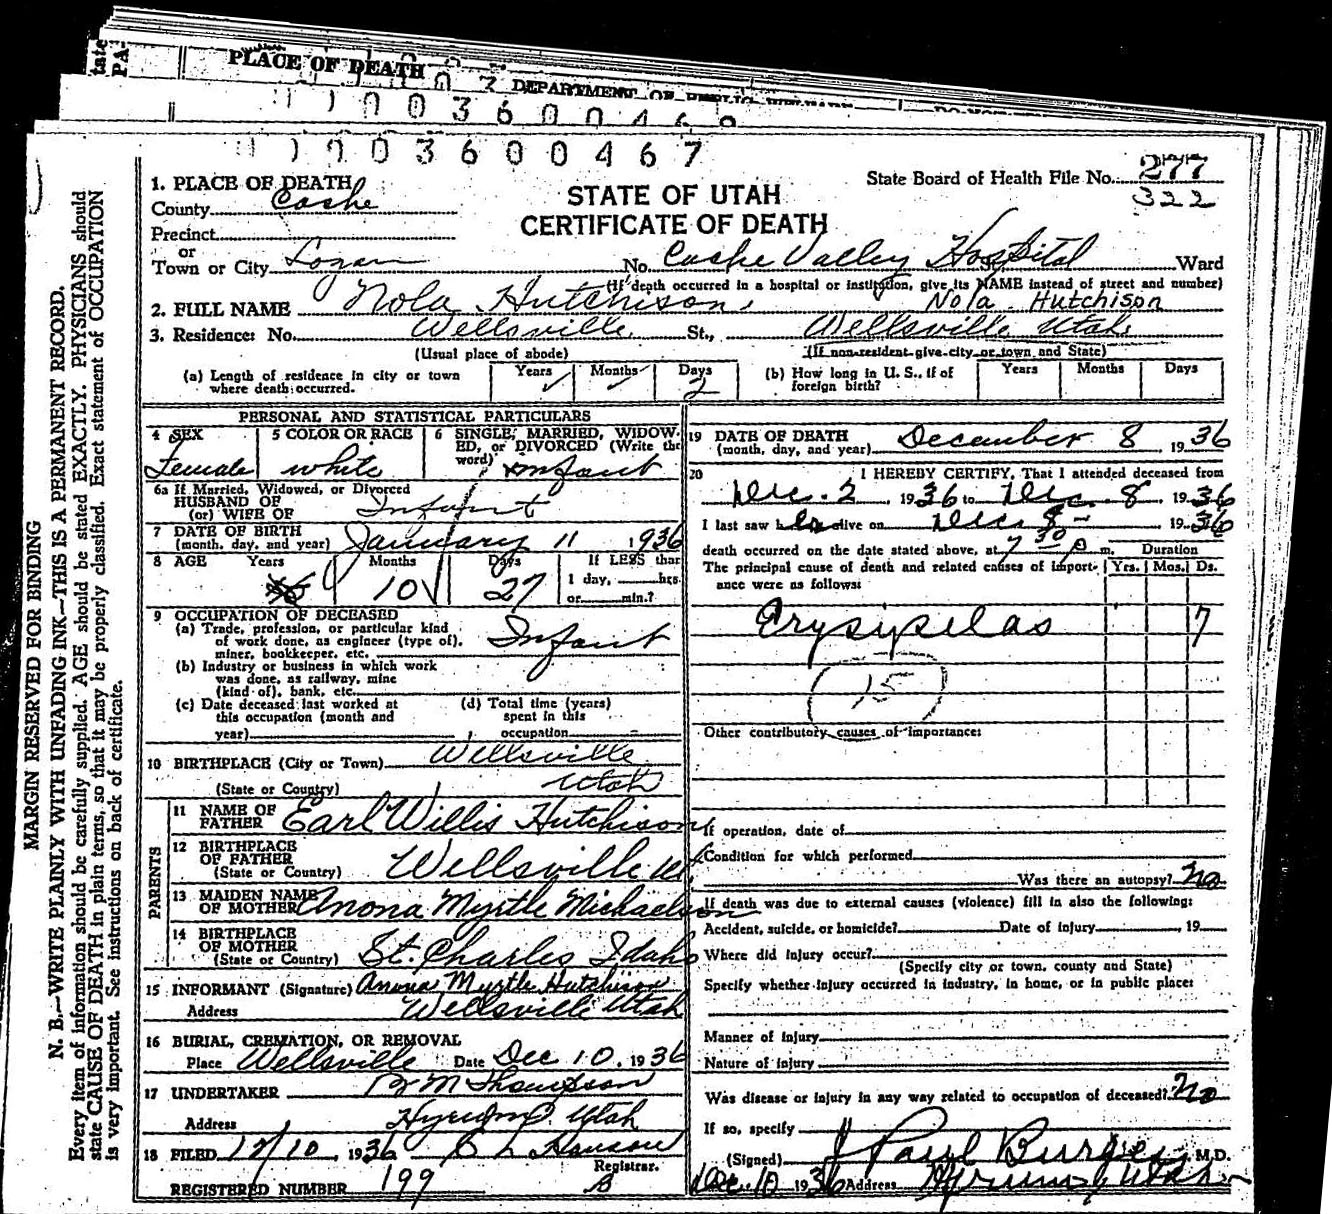 tate
PA-
PLACE OF DEATH
DEPARTMENT OF PUBLIC WELFARE
0 0 3 6 0 0 4 6 8
0 0 3 6 0 0 4 6 7
MARGIN RESERVED FOR BINDING
N. B.—WRITE PLAINLY WITH UNFADING INK—THIS IS A PERMANENT RECORD.
Every item of information should be carefully supplied. AGE should be stated EXACTLY. PHYSICIANS should
state CAUSE OF DEATH in plain terms, so that it may be properly classified. Exact statement of OCCUPATION
is very important. See instructions on back of certificate.
1. PLACE OF DEATH
County Cache
Precinct
or
Town or City Logan
STATE OF UTAH
CERTIFICATE OF DEATH
State Board of Health File No. 277
322
No. Cache Valley Hospital Ward
(If death occurred in a hospital or institution, give its NAME instead of street and number)
2. FULL NAME Nola Hutchison. Nola Hutchison
3. Residence: No. Wellsville St., Wellsville Utah
(Usual place of abode) (If non-resident give city or town and State)
(a) Length of residence in city or town where death occurred. Years Months Days 2
(b) How long in U. S., if of foreign birth? Years Months Days
PERSONAL AND STATISTICAL PARTICULARS
4 SEX Female
5 COLOR OR RACE white
6 SINGLE, MARRIED, WIDOWED, or DIVORCED (Write the word) Infant
6a If Married, Widowed, or Divorced
HUSBAND OF
(or) WIFE OF Infant
7 DATE OF BIRTH
(month, day, and year) January 11 1936
8 AGE Years Months 10 Days 27
If LESS than
1 day, hrs.
or min.?
9 OCCUPATION OF DECEASED
(a) Trade, profession, or particular kind
of work done, as engineer (type of),
miner, bookkeeper, etc. Infant
(b) Industry or business in which work
was done, as railway, mine
(kind of), bank, etc.
(c) Date deceased last worked at
this occupation (month and
year)
(d) Total time (years)
spent in this
occupation
10 BIRTHPLACE (City or Town) Wellsville
(State or Country) Utah
PARENTS
11 NAME OF FATHER Earl Willis Hutchison
12 BIRTHPLACE OF FATHER
(State or Country) Wellsville Ut
13 MAIDEN NAME OF MOTHER Anona Myrtle Michaelson
14 BIRTHPLACE OF MOTHER
(State or Country) St. Charles Idaho
15 INFORMANT (Signature) Anona Myrtle Hutchison
Address Wellsville Utah
16 BURIAL, CREMATION, OR REMOVAL
Place Wellsville Date Dec 10, 1936
17 UNDERTAKER M Thompson
Address Hyrum Utah
18 FILED 12/10, 1936 C L Hanson
Registrar.
REGISTERED NUMBER 199
19 DATE OF DEATH
(month, day, and year) December 8 1936
20 I HEREBY CERTIFY, That I attended deceased from
Dec. 2 1936 to Dec. 8, 1936
I last saw her alive on Dec 8 - 1936
death occurred on the date stated above, at 7 30 p m.
Duration
The principal cause of death and related causes of importance were as follows:
Yrs. Mos. Ds.
Erysipelas 7
15
Other contributory causes of importance:
If operation, date of
Condition for which performed
Was there an autopsy? No
If death was due to external causes (violence) fill in also the following:
Accident, suicide, or homicide? Date of injury , 19
Where did injury occur?
(Specify city or town, county and State)
Specify whether injury occurred in industry, in home, or in public place:
Manner of injury
Nature of injury
Was disease or injury in any way related to occupation of deceased? No
If so, specify
(Signed) J Paul Burgess, M.D.
Dec. 10 1936 Address Hyrum, Utah